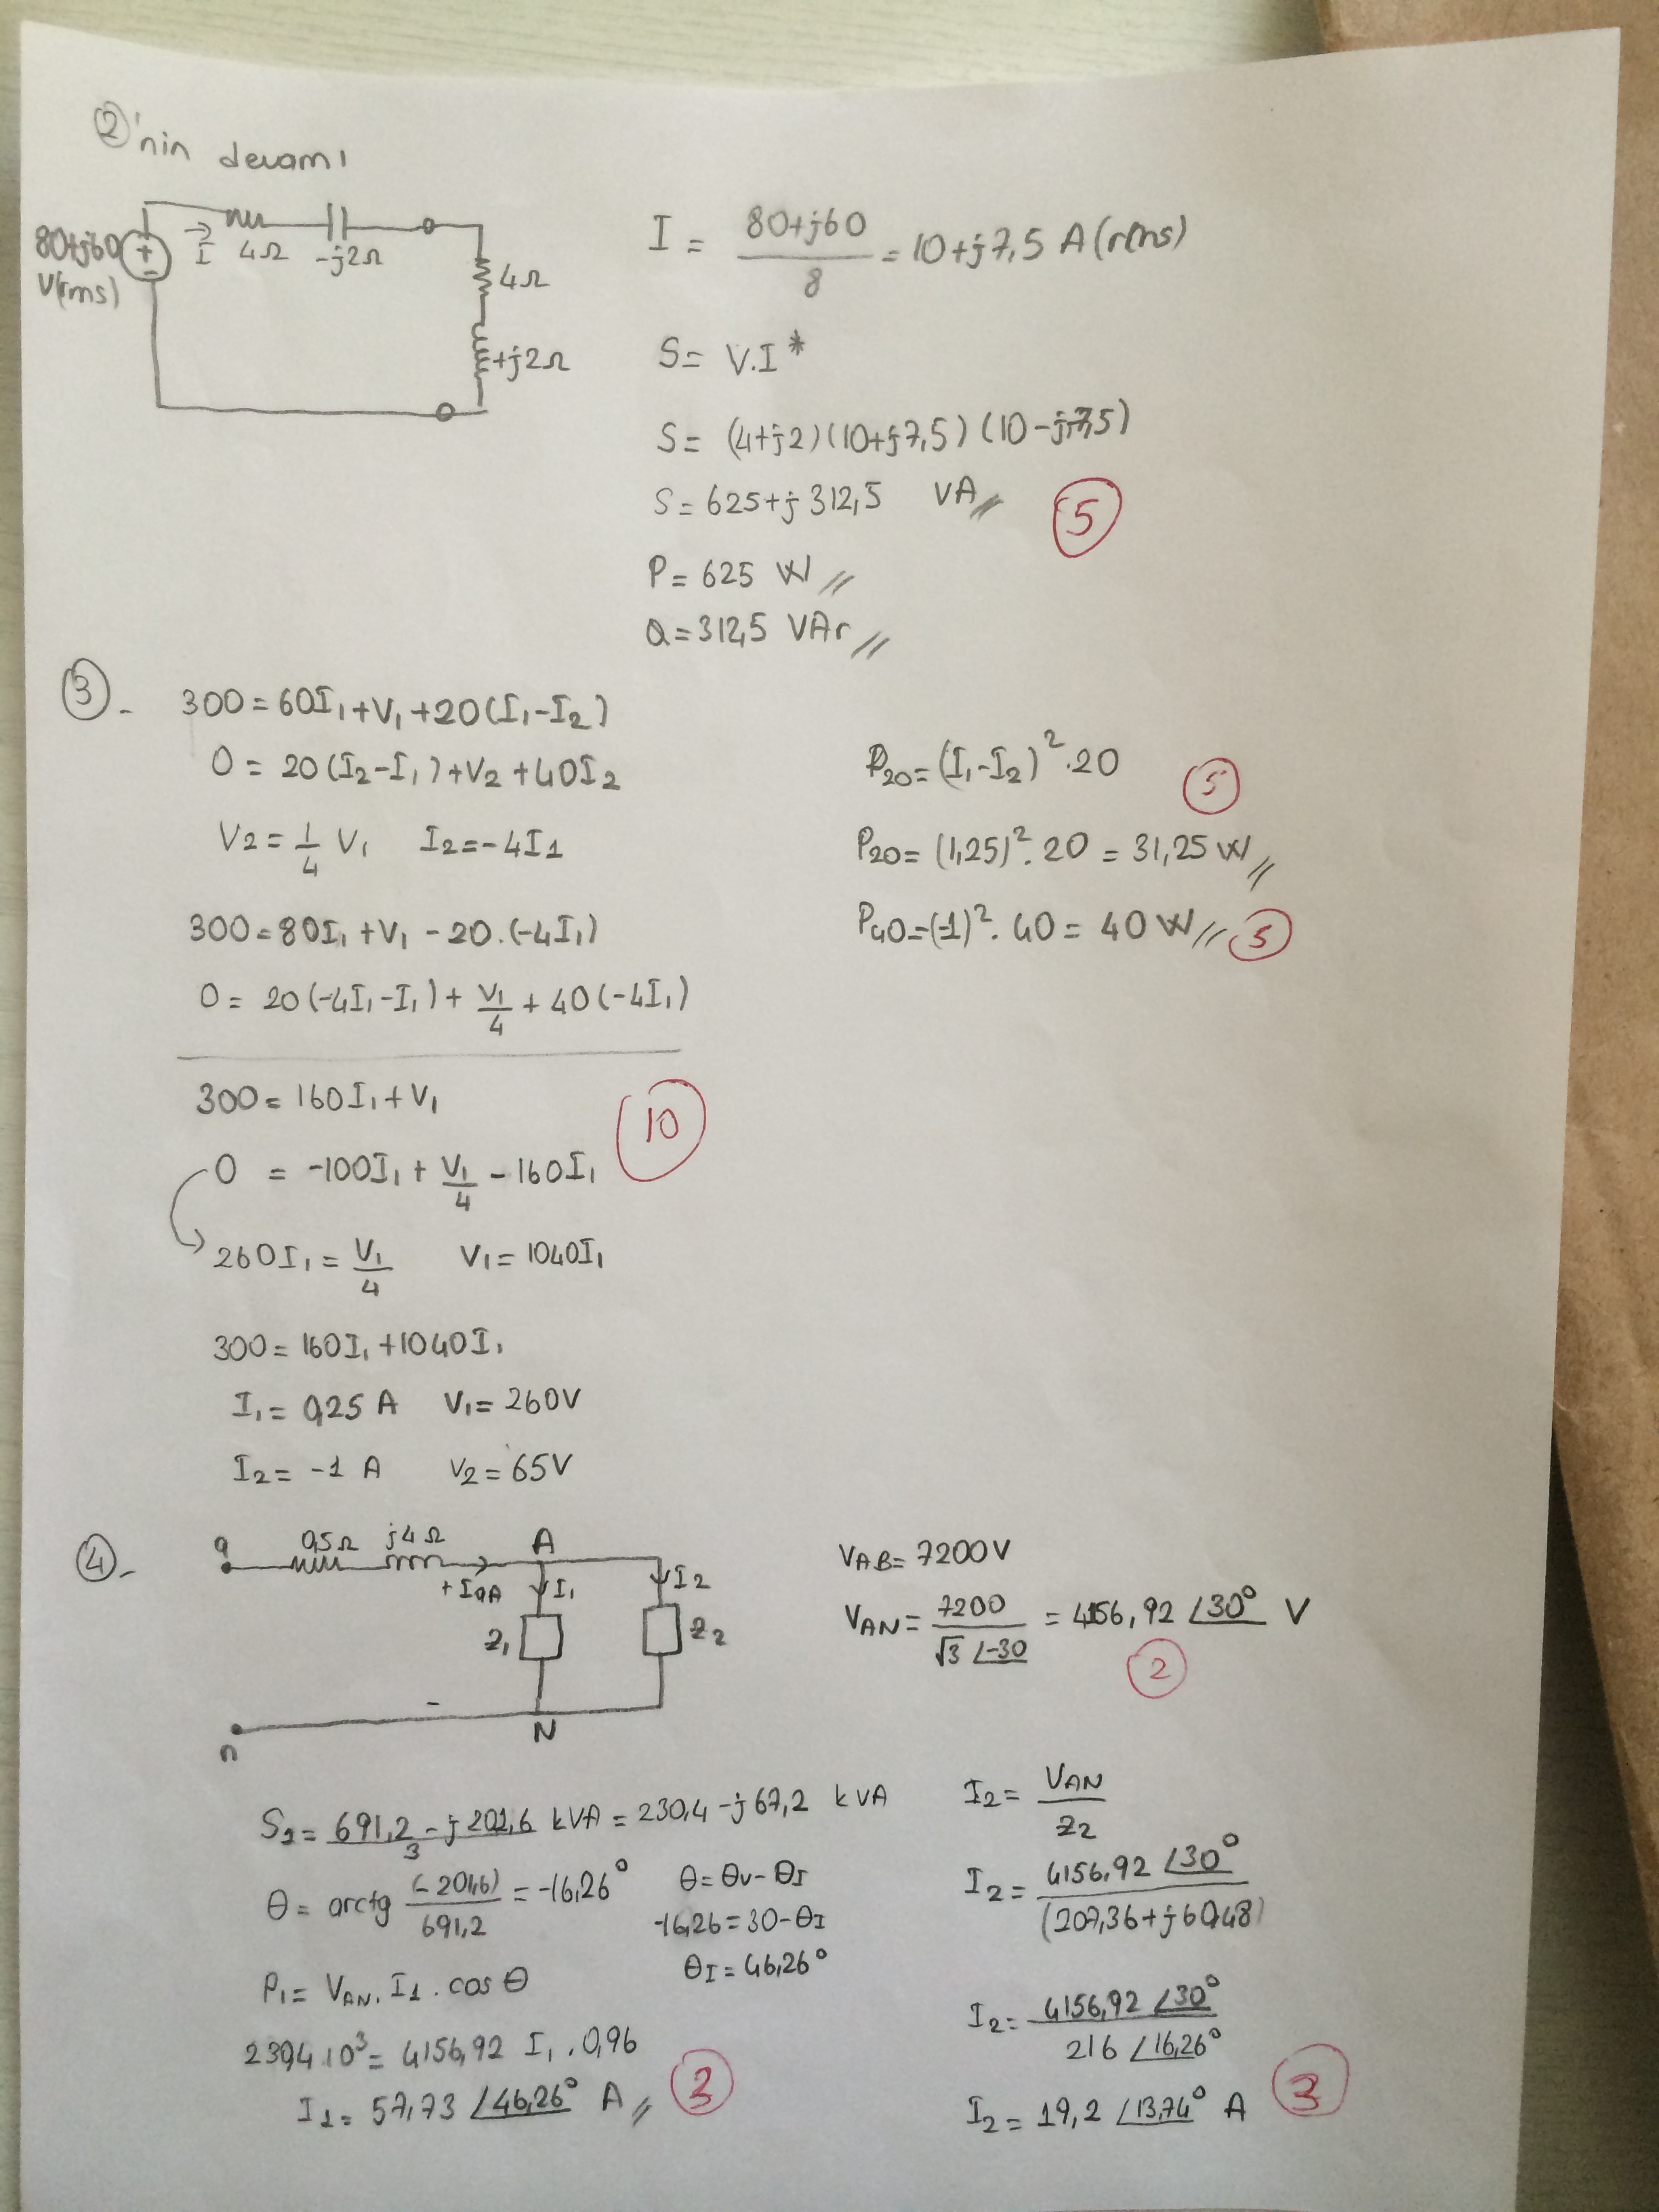 ②'nin devamı
80+j60 V(rms)
I
4Ω
-j2Ω
4Ω
+j2Ω
I = (80+j60)/8 = 10+j7,5 A(rms)
S= V.I*
S= (4+j2)(10+j7,5)(10-j7,5)
S= 625+j312,5 VA
⑤
P= 625 W
Q=312,5 VAr
③- 300=60I₁+V₁+20(I₁-I₂)
0= 20(I₂-I₁)+V₂+40I₂
V₂=1/4 V₁ I₂=-4I₁
300=80I₁+V₁-20.(-4I₁)
0= 20(-4I₁-I₁)+V₁/4+40(-4I₁)
300=160I₁+V₁
0 = -100I₁+V₁/4-160I₁
⑩
260I₁=V₁/4 V₁=1040I₁
300=160I₁+1040I₁
I₁= 0,25 A V₁=260V
I₂= -1 A V₂=65V
P₂₀=(I₁-I₂)².20
⑤
P₂₀=(1,25)².20=31,25W
P₄₀=(-1)².40=40W
⑤
④-
a
0,5Ω
j4Ω
A
+IaA
I₁
I₂
Z₁
Z₂
-
n
N
VAB=7200V
VAN=7200/√3∠-30 = 4156,92∠30° V
②
S₁=(691,2-j201,6)/3 kVA=230,4-j67,2 kVA
θ= arctg (-201,6)/691,2=-16,26°
θ=θv-θI
-16,26=30-θI
θI=46,26°
P₁=VAN.I₁.cosθ
230,4.10³=4156,92 I₁.0,96
I₁=57,73∠46,26° A
③
I₂=VAN/Z₂
I₂=4156,92∠30°/(207,36+j60,48)
I₂=4156,92∠30°/216∠16,26°
I₂=19,2∠13,74° A
③